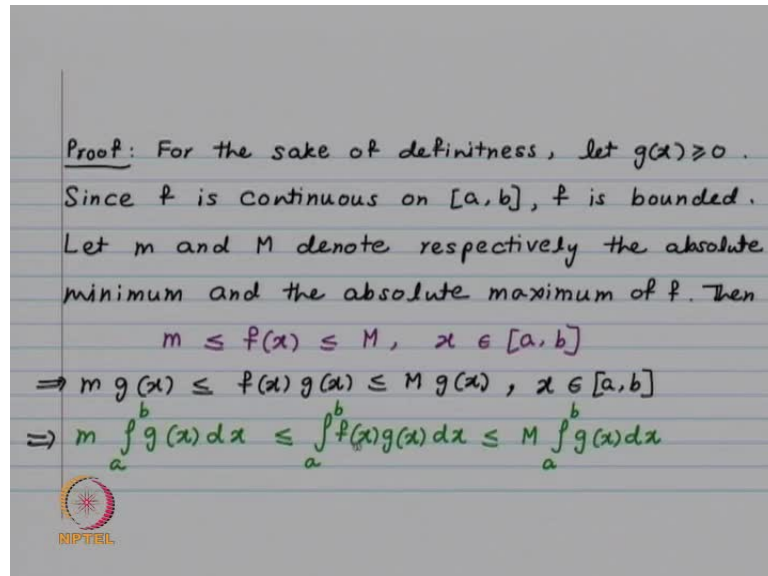 Proof: For the sake of definitness, let g(x) ≥ 0.
Since f is continuous on [a, b], f is bounded.
Let m and M denote respectively the absolute
minimum and the absolute maximum of f. Then
m ≤ f(x) ≤ M, x ∈ [a, b]
⇒ m g(x) ≤ f(x) g(x) ≤ M g(x), x ∈ [a, b]
⇒ m ∫_a^b g(x) dx ≤ ∫_a^b f(x) g(x) dx ≤ M ∫_a^b g(x) dx
NPTEL